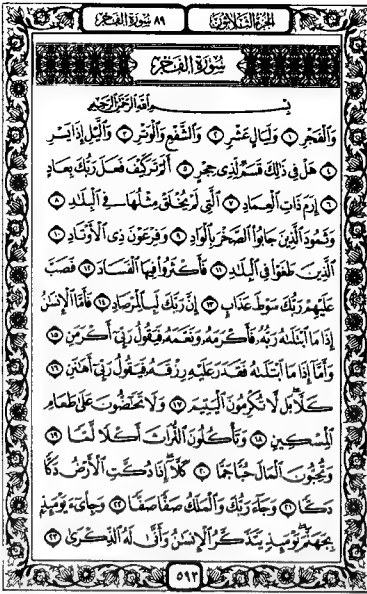 ٨٩ سورة الفجر الجزء الثلاثون
سُورَةُ الفَجْرِ
بِسْمِ اللَّهِ الرَّحْمَٰنِ الرَّحِيمِ
وَالْفَجْرِ ١ وَلَيَالٍ عَشْرٍ ٢ وَالشَّفْعِ وَالْوَتْرِ ٣ وَاللَّيْلِ إِذَا يَسْرِ
٤ هَلْ فِي ذَٰلِكَ قَسَمٌ لِّذِي حِجْرٍ ٥ أَلَمْ تَرَ كَيْفَ فَعَلَ رَبُّكَ بِعَادٍ
٦ إِرَمَ ذَاتِ الْعِمَادِ ٧ الَّتِي لَمْ يُخْلَقْ مِثْلُهَا فِي الْبِلَادِ ٨
وَثَمُودَ الَّذِينَ جَابُوا الصَّخْرَ بِالْوَادِ ٩ وَفِرْعَوْنَ ذِي الْأَوْتَادِ ١٠
الَّذِينَ طَغَوْا فِي الْبِلَادِ ١١ فَأَكْثَرُوا فِيهَا الْفَسَادَ ١٢ فَصَبَّ
عَلَيْهِمْ رَبُّكَ سَوْطَ عَذَابٍ ١٣ إِنَّ رَبَّكَ لَبِالْمِرْصَادِ ١٤ فَأَمَّا الْإِنسَانُ
إِذَا مَا ابْتَلَاهُ رَبُّهُ فَأَكْرَمَهُ وَنَعَّمَهُ فَيَقُولُ رَبِّي أَكْرَمَنِ ١٥
وَأَمَّا إِذَا مَا ابْتَلَاهُ فَقَدَرَ عَلَيْهِ رِزْقَهُ فَيَقُولُ رَبِّي أَهَانَنِ ١٦
كَلَّا بَل لَّا تُكْرِمُونَ الْيَتِيمَ ١٧ وَلَا تَحَاضُّونَ عَلَىٰ طَعَامِ
الْمِسْكِينِ ١٨ وَتَأْكُلُونَ التُّرَاثَ أَكْلًا لَّمًّا ١٩
وَتُحِبُّونَ الْمَالَ حُبًّا جَمًّا ٢٠ كَلَّا إِذَا دُكَّتِ الْأَرْضُ دَكًّا
دَكًّا ٢١ وَجَاءَ رَبُّكَ وَالْمَلَكُ صَفًّا صَفًّا ٢٢ وَجِيءَ يَوْمَئِذٍ
بِجَهَنَّمَ يَوْمَئِذٍ يَتَذَكَّرُ الْإِنسَانُ وَأَنَّىٰ لَهُ الذِّكْرَىٰ ٢٣
٥٩٣